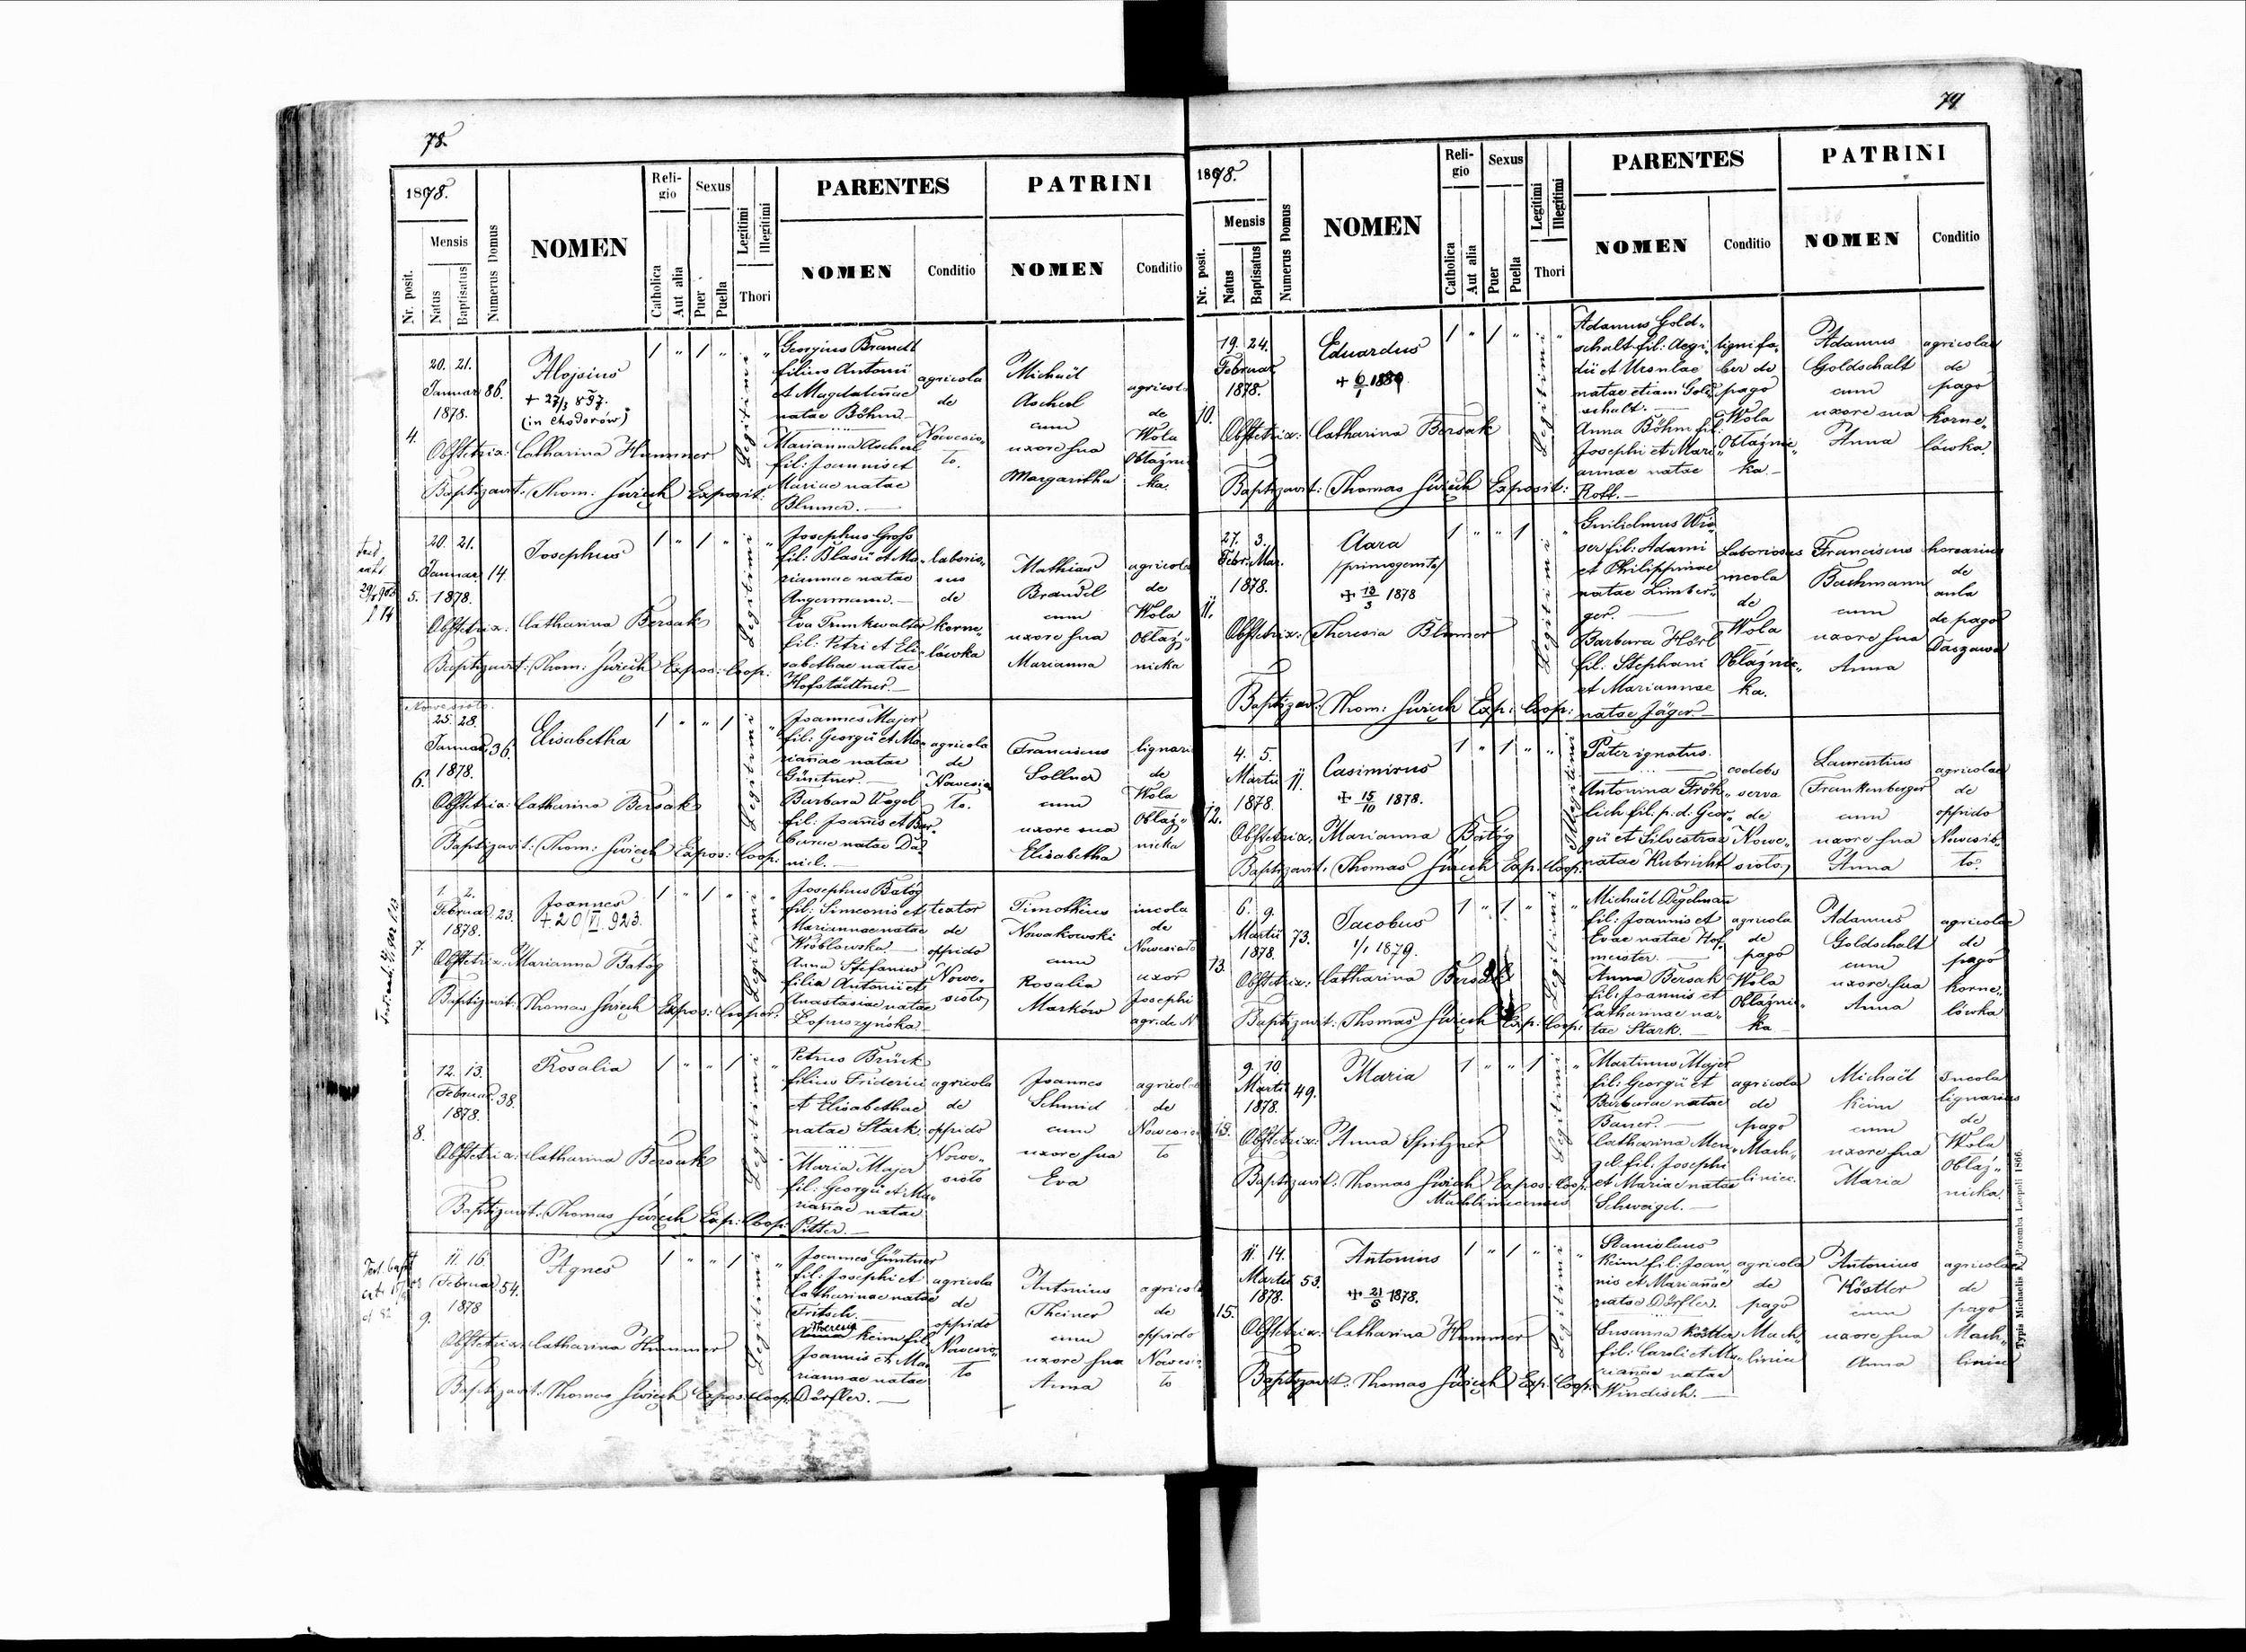 78.
1878.
Nr. posit.
Mensis
Natus
Baptisatus
Numerus Domus
NOMEN
Reli-
gio
Catholica
Aut alia
Sexus
Puer
Puella
Legitimi
Illegitimi
Thori
PARENTES
NOMEN
Conditio
PATRINI
NOMEN
Conditio
4.
20. 21.
Januar
1878.
86.
Aloisius
+ 27/3 897.
(in Chodorów)
Obstetrix: Catharina Hummer
Baptizavit: Thom: Świech Exposit:
Legitimi
Georgius Brandl
filius Antonii
et Magdalenae
natae Böhm
Marianna Ascherl
fil: Joannis et
Mariae natae
Blumer.
agricola
de
Nowesio„
ło.
Michaël
Ascherl
cum
uxore sua
Margaritha
agricol
de
Wola
Obłaźni
ka.
5.
20. 21.
Januar
1878.
14.
Josephus
Obstetrix: Catharina Bersak
Baptizavit: Thom: Świech Expos: Coop.
Legitimi
Josephus Gross
fil: Blasii et Ma„
riannae natae
Angermann.
Eva Trunkwalter
fil: Petri et Eli„
sabethae natae
Hofstädtner.
laborio„
sus
de
Korne„
lówka
Mathias
Brandel
cum
uxore sua
Marianna
agricola
de
Wola
Obłaź„
nicka
Nowesioło.
6.
25. 28.
Januar
1878.
36.
Elisabetha
Obstetrix: Catharina Bersak
Baptizavit: Thom: Świech Expos: Coop:
Legitimi
Joannes Majer
fil: Georgii et Ma„
rianae natae
Güntner.
Barbara Vogel
fil: Joanis et Bar„
barae natae Da„
niel.
agricola
de
Nowesio
ło.
Franciscus
Sollner
cum
uxore sua
Elisabetha
lignari
de
Wola
Obłaź„
nicka
7.
1. 2.
Februar.
1878.
23.
Joannes
+ 20/VI. 923.
Obstetrix: Marianna Batóg
Baptizavit: Thomas Świech Expos: Cooper:
Legitimi
Josephus Batóg
fil: Simeonis et
Mariannae natae
Wróblowska
Anna Stefaniw
filia Antonii et
Anastasiae natae
Łopuszyńska
textor
de
oppido
Nowe„
sioło
Timotheus
Nowakowski
cum
Rosalia
Marków
incola
de
Nowesioło
uxor
Josephi
agr. de N
8.
12. 13.
Februar.
1878.
38.
Rosalia
Obstetrix: Catharina Bersak
Baptizavit: Thomas Świech Exp: Coop:
Legitimi
Petrus Brück
filius Friderici
et Elisabethae
natae Stark.
Maria Majer
fil: Georgii et Ma„
rianae natae
Pitter.
agricola
de
oppido
Nowe„
sioło
Joannes
Schmid
cum
uxore sua
Eva
agricola
de
Nowesio
ło
9.
11. 16.
Februar.
1878
54.
Agnes
Obstetrix: Catharina Hummer
Baptizavit: Thomas Świech Expos: Coop.
Legitimi
Joannes Güntner
fil: Josephi et
Catharinae natae
Fritsch.
Theresia
Anna Keim fil:
Joannis et Ma„
riannae natae
Dörfler.
agricola
de
oppido
Nowesio„
ło
Antonius
Theiner
cum
uxore sua
Anna
agricola
de
oppido
Nowesi
ło
79
1878.
Nr. posit.
Mensis
Natus
Baptisatus
Numerus Domus
NOMEN
Reli-
gio
Catholica
Aut alia
Sexus
Puer
Puella
Legitimi
Illegitimi
Thori
PARENTES
NOMEN
Conditio
PATRINI
NOMEN
Conditio
10.
19. 24.
Februar
1878.
Eduardus
Obstetrix: Catharina Bersak
Baptizavit: Thomas Świech Exposit:
Legitimi
Adamus Gold„
schalt fil: Aegi„
dii et Ursulae
natae etiam Gold
schalt.
Anna Böhm fil:
Josephi et Mari„
annae natae
Rott.
lignifa„
ber de
pago
Wola
Obłaźnic„
ka.
Adamus
Goldschalt
cum
uxore sua
Anna
agricolae
de
pago
Korne„
lówka
11.
27. 3.
Febr. Mar.
1878.
Clara
/primogenita/
+ 13/3 1878
Obstetrix: Theresia Blumer
Baptizav: Thom: Świech Exp: Coop:
Legitimi
Guilielmus Wie„
ser fil: Adami
et Philippinae
natae Limber„
ger.
Barbara Hörl
fil: Stephani
et Mariannae
natae Jäger
Laboriosus
incola
de
Wola
Obłaźnic„
ka.
Franciscus
Bachmann
cum
uxore sua
Anna
horearius
de
aula
de pago
Daszawa
12.
4. 5.
Martii
1878.
11.
Casimirus
+ 15/10 1878.
Obstetrix: Marianna Batóg
Baptizavit: Thomas Świech Exp. Coop:
Illegitimi
Pater ignotus.
Antonina Fröh„
lich fil: p: d: Geor„
gii et Silvestrae
natae Kubricht
coelebs
serva
de
Nowe„
sioło
Laurentius
Frankenberger
cum
uxore sua
Anna
agricolae
de
oppido
Nowesio„
ło.
13.
6. 9.
Martii
1878.
73.
Jacobus
1/1 1879.
Obstetrix: Catharina Bersak
Baptizavit: Thomas Świech Exp: Coop:
Legitimi
Michaël Degelman
fil: Joannis et
Evae natae Hof„
meister.
Anna Bersak
fil: Joannis et
Catharinae na„
tae Stark.
agricola
de
pago
Wola
Obłaźnic„
ka
Adamus
Goldschalt
cum
uxore sua
Anna
agricolae
de
pago
Korne„
lówka
9. 10.
Martii
1878.
49.
Maria
Obstetrix: Anna Spitzner
Baptizavit: Thomas Świech Expos: Coop:
Machlinicensis
Legitimi
Martinus Majer
fil: Georgii et
Barbarae natae
Bauer.
Catharina Men„
zel fil: Josephi
et Mariae natae
Schweigel.
agricola
de
pago
Mach„
liniec.
Michaël
Keim
cum
uxore sua
Maria
Incola
lignarius
de
Wola
Obłaź„
nicka
15.
11. 14.
Martii
1878.
53.
Antonius
+ 21/5 1878.
Obstetrix: Catharina Hummer
Baptizavit: Thomas Świech Exp. Coop:
Legitimi
Stanislaus
Keim fil: Joan„
nis et Marianae
natae Dörfler.
Susanna Köstler
fil: Caroli et Ma„
rianae natae
Windisch.
agricola
de
pago
Mach„
liniec
Antonius
Köstler
cum
uxore sua
Anna
agricolae
de
pago
Mach„
liniec
Typis Michaelis F. Poremba Leopoli 1866.